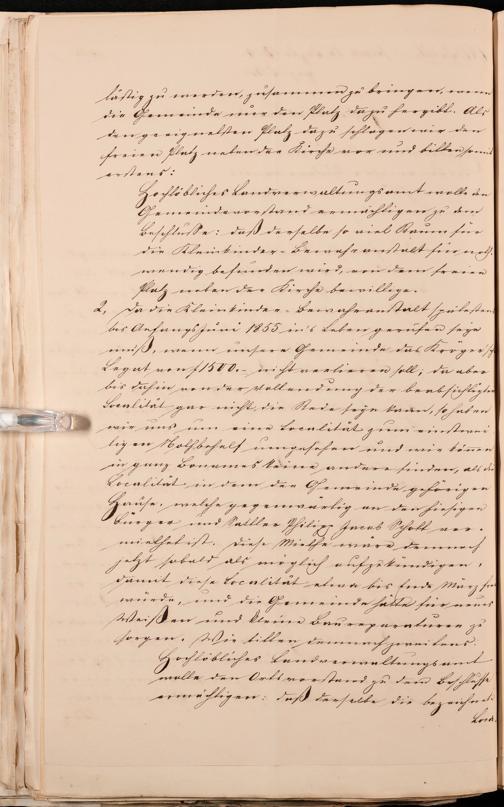 lästig zu werden, zusammen zu bringen, wenn
die Gemeinde nur den Platz dazu hergibt. Als
den geeignetsten Platz dazu schlagen wir den
freien Platz neben der Kirche vor und bitten somit
erstens:
Hochlöbliches Landverwaltungsamt wolle den
Gemeindevorstand ermächtigen zu dem
Beschlusse: daß derselbe so viel Raum für
die Kleinkinder-Bewahranstalt für noth-
wendig befunden wird, von dem freien
Platz neben der Kirche bewillige.
2, Da die Kleinkinder-Bewahranstalt spätestens
bis Anfangs Juni 1855 in's Leben gerufen seyn
muß, wenn unsere Gemeinde das
Legat von f 1500.- nicht verlieren soll; da aber
bis dahin von der Vollendung der beabsichtigten
Localität gar nicht die Rede seyn kann, so haben
wir uns um eine Localität zum einstwei
ligen Nothbehelf umgesehen und wir können
in ganz Bonames keine andere finden, als die
Localität in dem der Gemeinde gehörigen
Hause, welche gegenwärtig an den hiesigen
Bürger und Sattler Philipp Jacob Schott ver-
miethet ist. Diese Miethe wäre demnach
jetzt sobald als möglich aufzukündigen,
damit diese Localität etwa bis Ende März
würde, und die Gemeinde hätte für neues
Weißen und kleine Baureparaturen zu
sorgen. Wir bitten demnach zweitens:
Hochlöbliches Landverwaltungsamt
wolle den Ortsvorstand zu dem Beschlusse
ermächtigen: daß derselbe die bezeichnete
Loca-